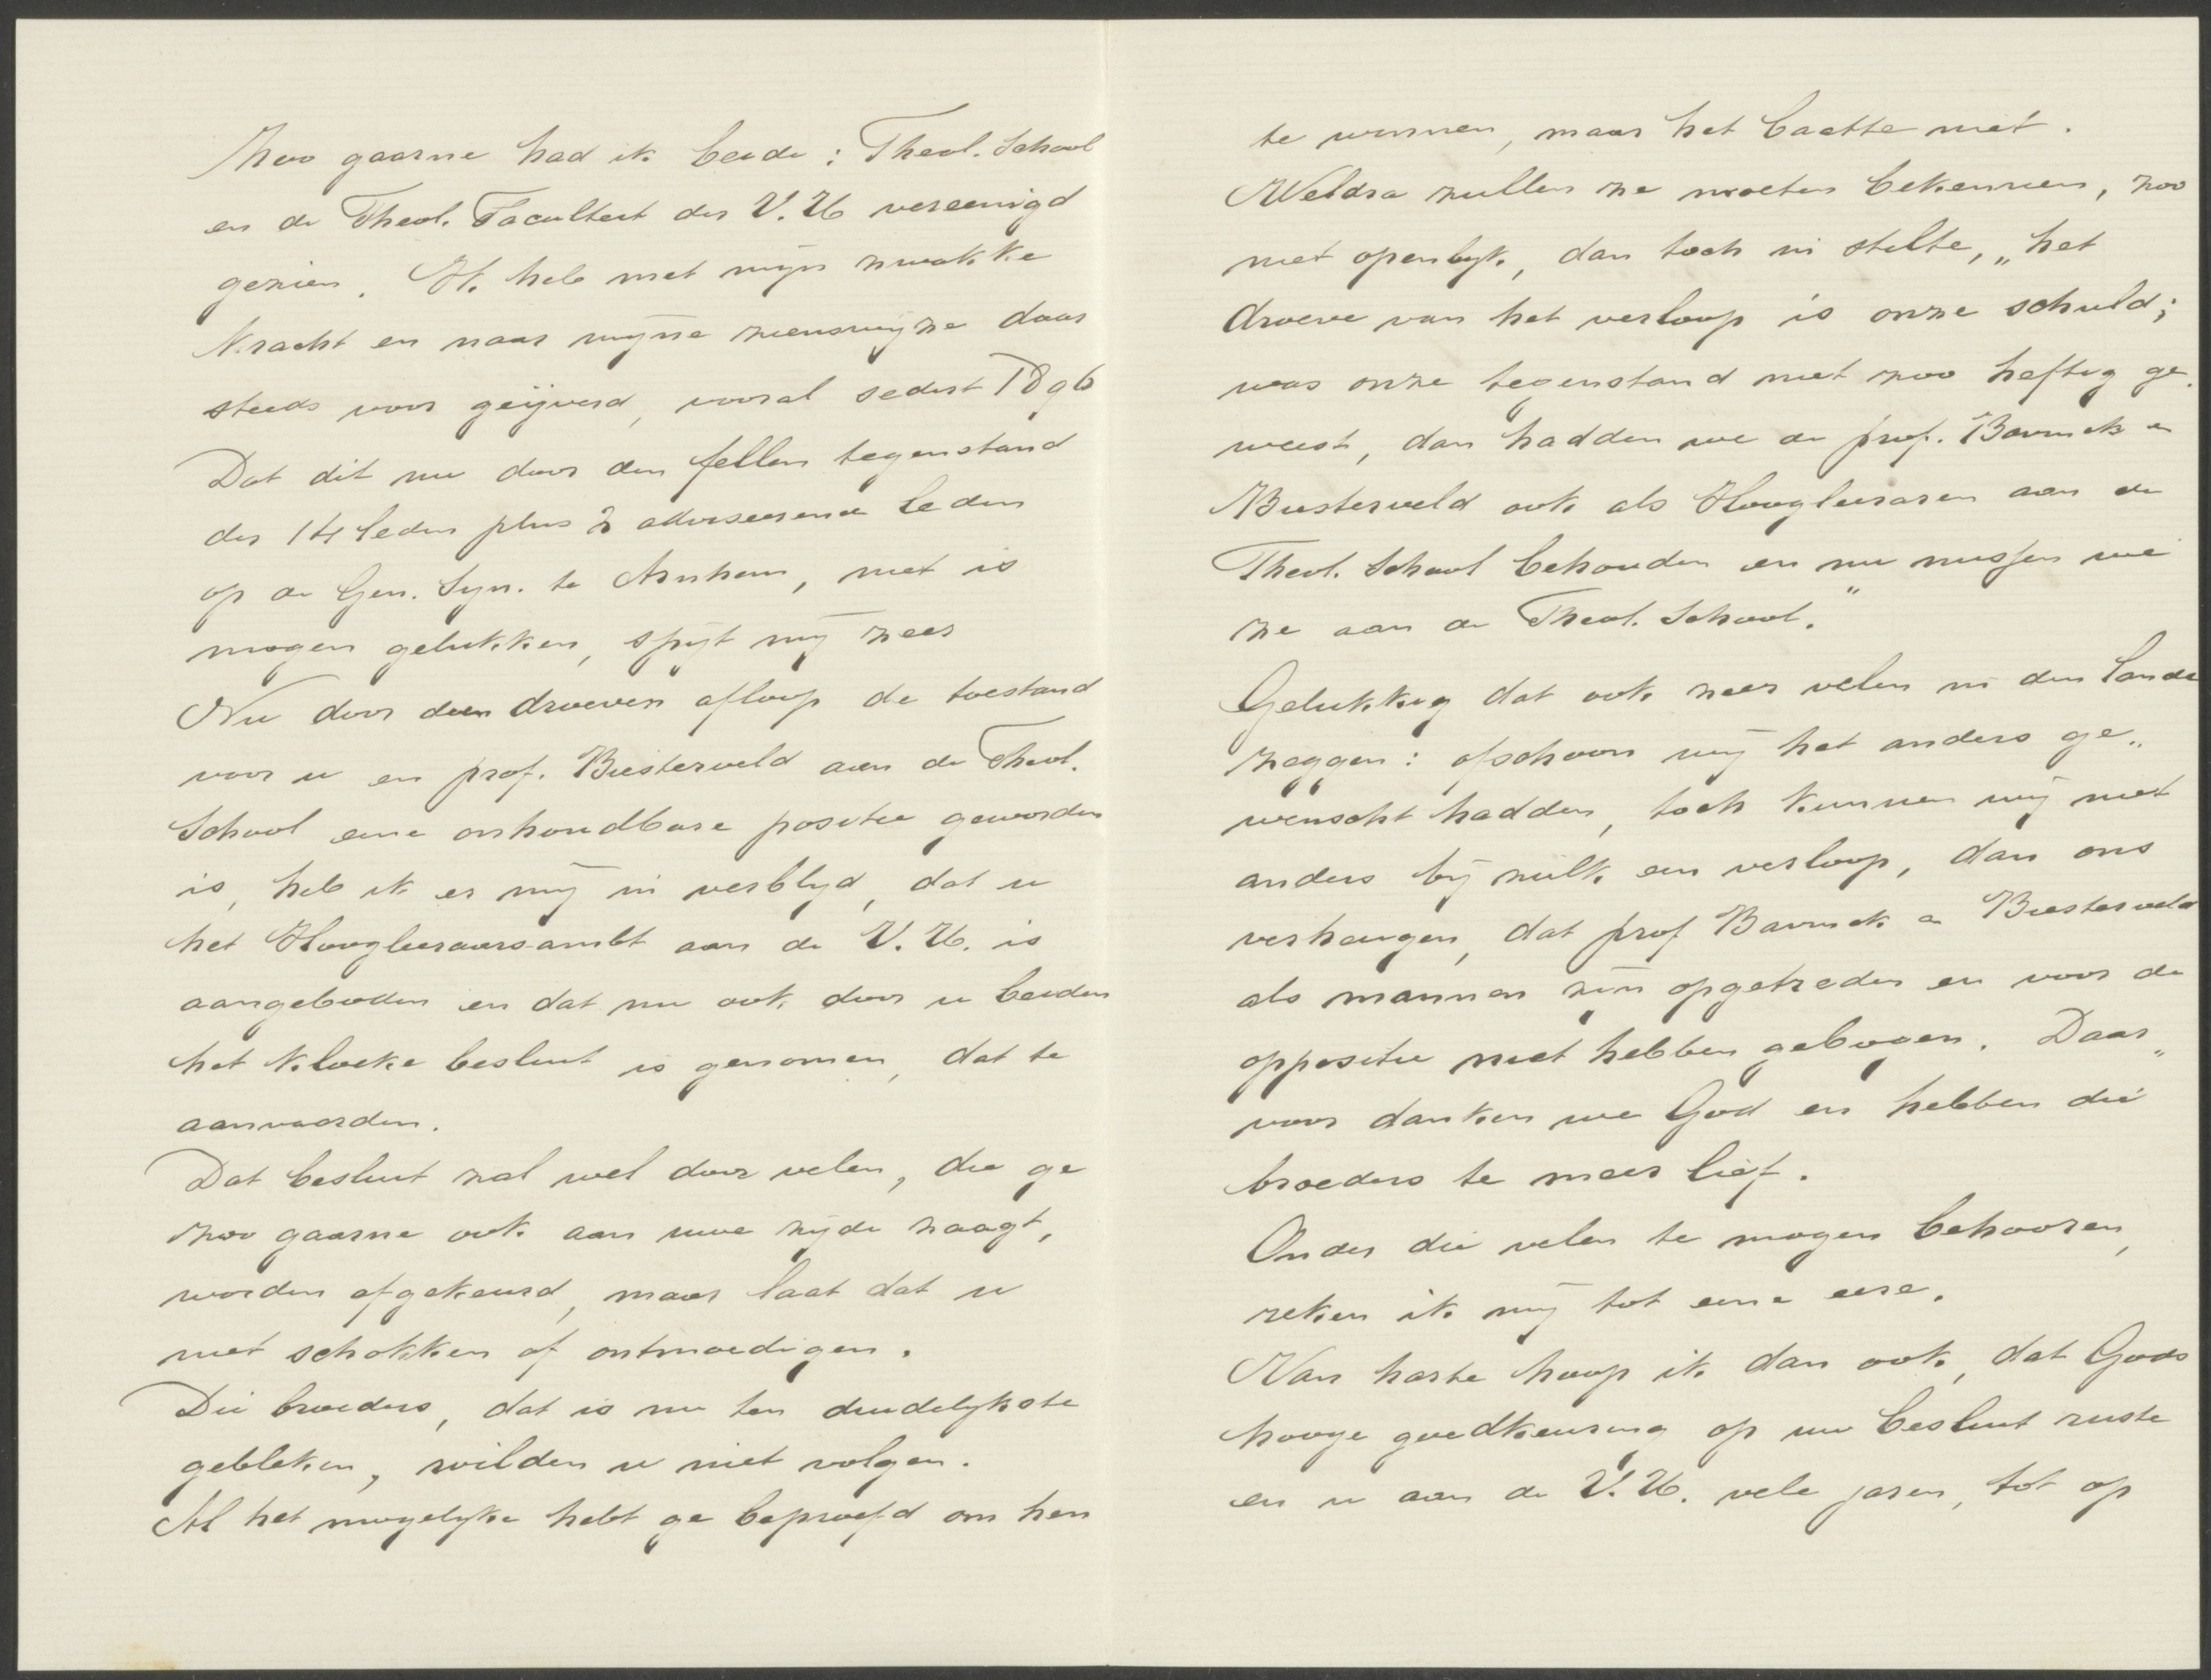 Zoo gaarne had ik beide: Theol. School
en de Theol. Faculteit der V. U vereenigd
gezien. Ik heb met mijn zwakke
kracht en naar mijne zienswijze daar
steeds voor geijverd, vooral sedert 1896
Dat dit nu door den fellen tegenstand
der 14 leden plus 2 adviseerende leden
op de Gen. Syn. te Arnhem, niet is
mogen gelukken, spijt mij zeer
Nu door den droeven afloop de toestand
voor u en prof. Biesterveld aan de Theol.
School eene onhoudbare positie geworden
is, heb ik er mij in verblijd, dat u
het Hoogleeraarsambt aan de V. U. is
aangeboden en dat nu ook door u beiden
het kloeke besluit is genomen, dat te
aanvaarden.
Dat besluit zal wel door velen, die ge
zoo gaarne ook aan uwe zijde zaagt,
worden afgekeurd, maar laat dat u
niet schokken of ontmoedigen.
Die broeders, dat is nu ten duidelijkste
gebleken, wilden u niet volgen.
Al het mogelijke hebt ge beproefd om hen
te winnen, maar het baatte niet.
Weldra zullen ze moeten bekennen, zoo
niet openlijk, dan toch in stilte, „het
droeve van het verloop is onze schuld;
was onze tegenstand niet zoo heftig ge„
weest, dan hadden we de prof. Bavinck en
Biesterveld ook als Hoogleeraren aan de
Theol. School behouden en nu missen we
ze aan de Theol. School."
Gelukkig dat ook zeer velen in den lande
zeggen: ofschoon wij het anders ge„
wenscht hadden, toch kunnen wij niet
anders bij zulk een verloop, dan ons
verheugen, dat prof Bavinck en Biesterveld
als mannen zijn opgetreden en voor de
oppositie niet hebben gebogen. Daar„
voor danken we God en hebben die
broeders te meer lief.
Onder die velen te mogen behooren,
reken ik mij tot eene eere.
Van harte hoop ik dan ook, dat Gods
hooge goedkeuring op uw besluit ruste
en u aan de V. U. vele jaren, tot op